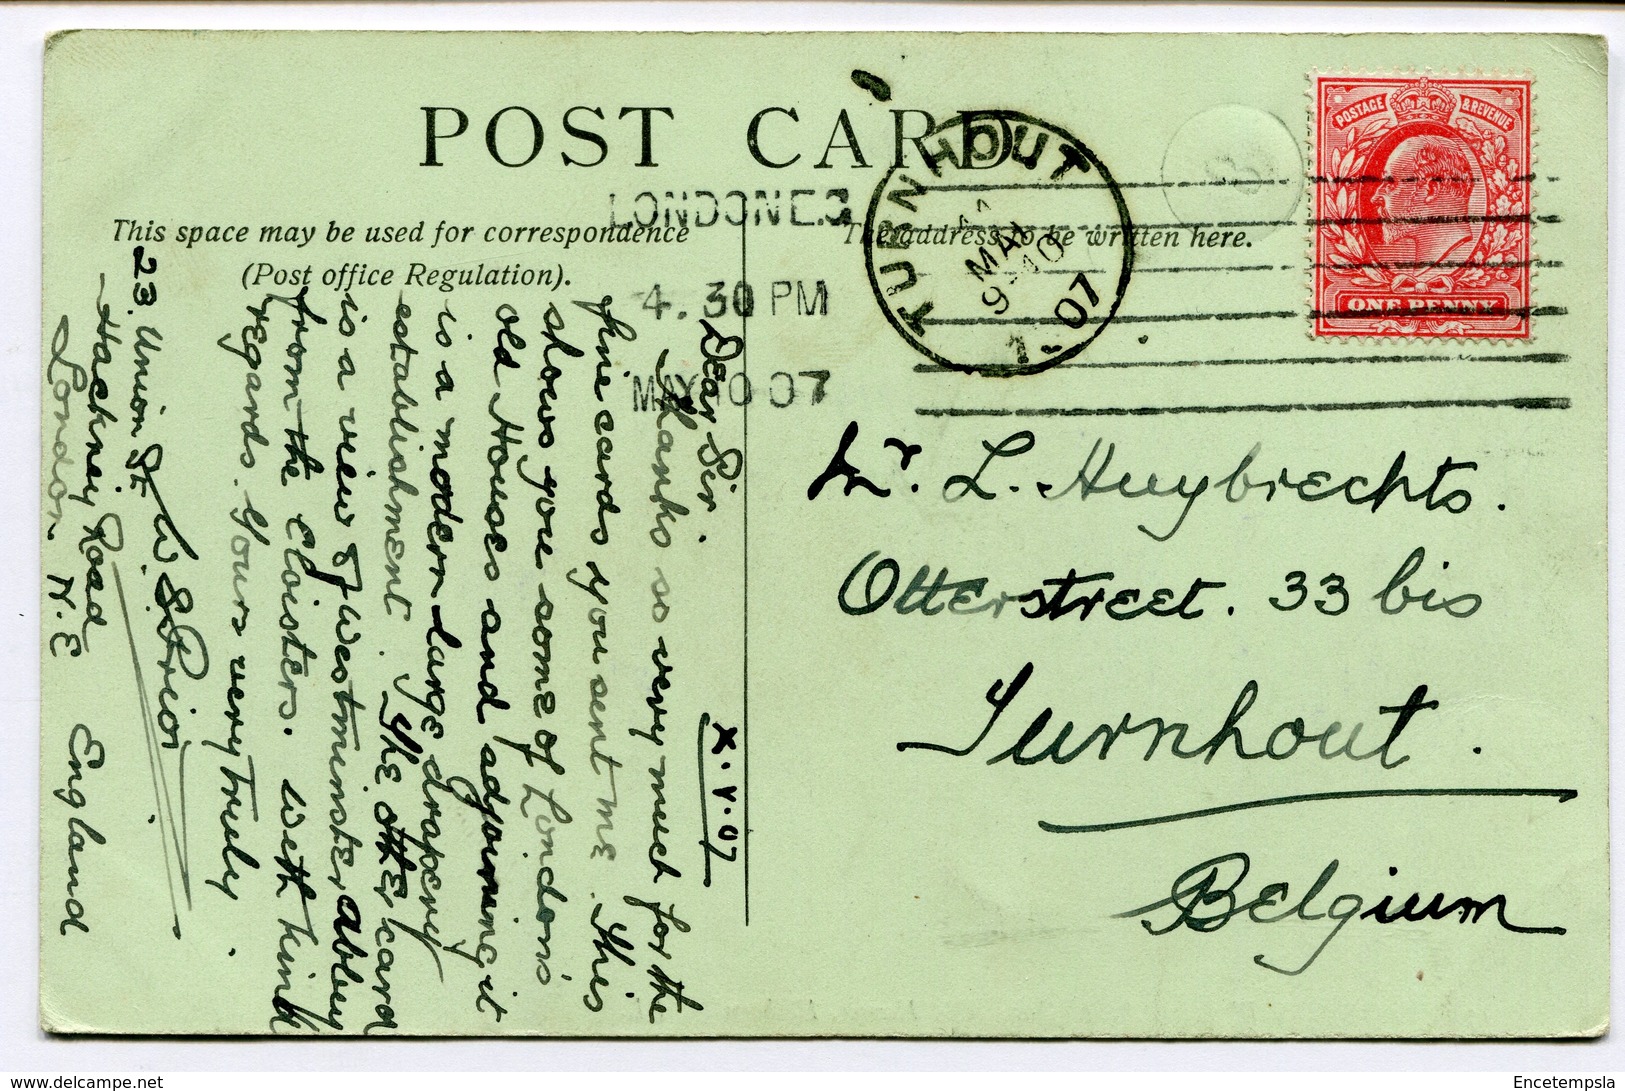 POST CARD
This space may be used for correspondence
(Post office Regulation).
The address to be written here.
LONDON E.C
4. 30 PM
MAY 10 07
TURNHOUT
MAI
9-10
07
POSTAGE & REVENUE
ONE PENNY
X.V.07
Dear Sir.
Thanks so very much for the
fine cards you sent me. This
shows you some of London's
old Houses and adjoining it
is a modern large drapery
establishment. The other card
is a view of Westminster Abbey
from the Cloisters. With kind
regards. Yours very Truly.
W. S. Prior.
23. Union St
Hackney Road
London. N.E England
Mr. L. Huybrechts.
Otterstreet. 33 bis
Turnhout.
Belgium
delcampe.net
Encetempsla